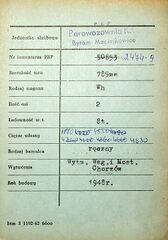 P K P
Jednostka służbowa Parowozownia Kl.
Bytom Maciejkowice
Nr inwentarza PKP 50853 2474-9
Szerokość toru 785mm
Rodzaj wagonu Wh
Ilość osi 2
Ładowność w t. 8t.
Ciężar własny 4630
Rodzaj hamulca ręczny
Wytwórnia Wytw. Wag. i Most.
Chorzów
Rok budowy 1948r.